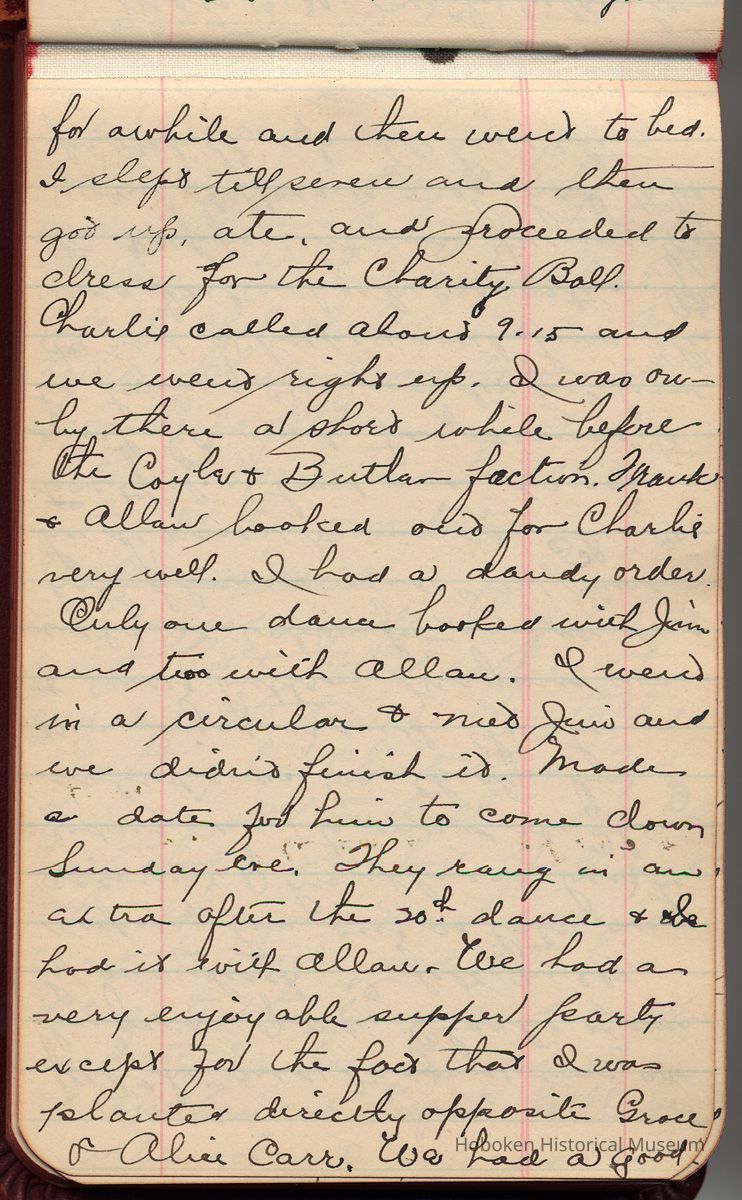 for awhile and then went to bed.
I slept till seven and then
got up, ate, and proceeded to
dress for the Charity Ball.
Charlie called about 9.15 and
we went right up. I was on-
ly there a short while before
the Coyle & Butler faction. Frank
& Allan booked out for Charlie
very well. I had a dandy order.
Only one dance booked with Jim
and two with Allan. I went
in a circular & met Jim and
we didn't finish it. Made
a date for him to come down
Sunday eve. They rang in an
extra after the 20th dance & I
had it with Allan. We had a
very enjoyable supper party
except for the fact that I was
planted directly opposite Grace
& Alice Carr. We had a good
Hoboken Historical Museum